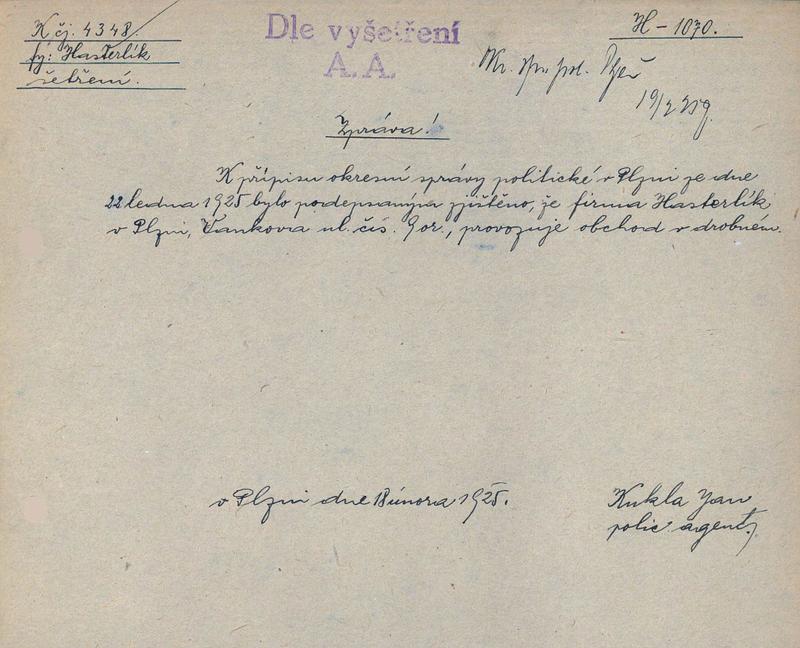 K čj. 4348.
fy: Hasterlík
šetření.
Dle vyšetření
A. A.
H – 1070.
19/2 25
Zpráva!
K přípisu okresní správy politické v Plzni ze dne
22 ledna 1925 bylo podepsaným zjištěno, že firma Hasterlík
v Plzni, ul. čís. provozuje obchod v drobném.
v Plzni dne 18 února 1925.
Kukla Jan
polic. agent.